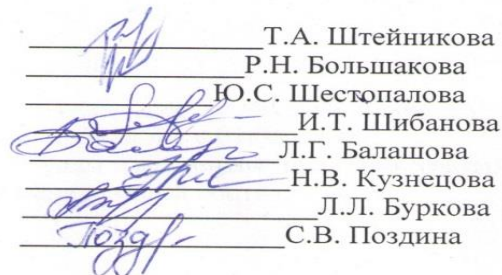 Т.А. Штейникова
Р.Н. Большакова
Ю.С. Шестопалова
И.Т. Шибанова
Л.Г. Балашова
Н.В. Кузнецова
Л.Л. Буркова
С.В. Поздина